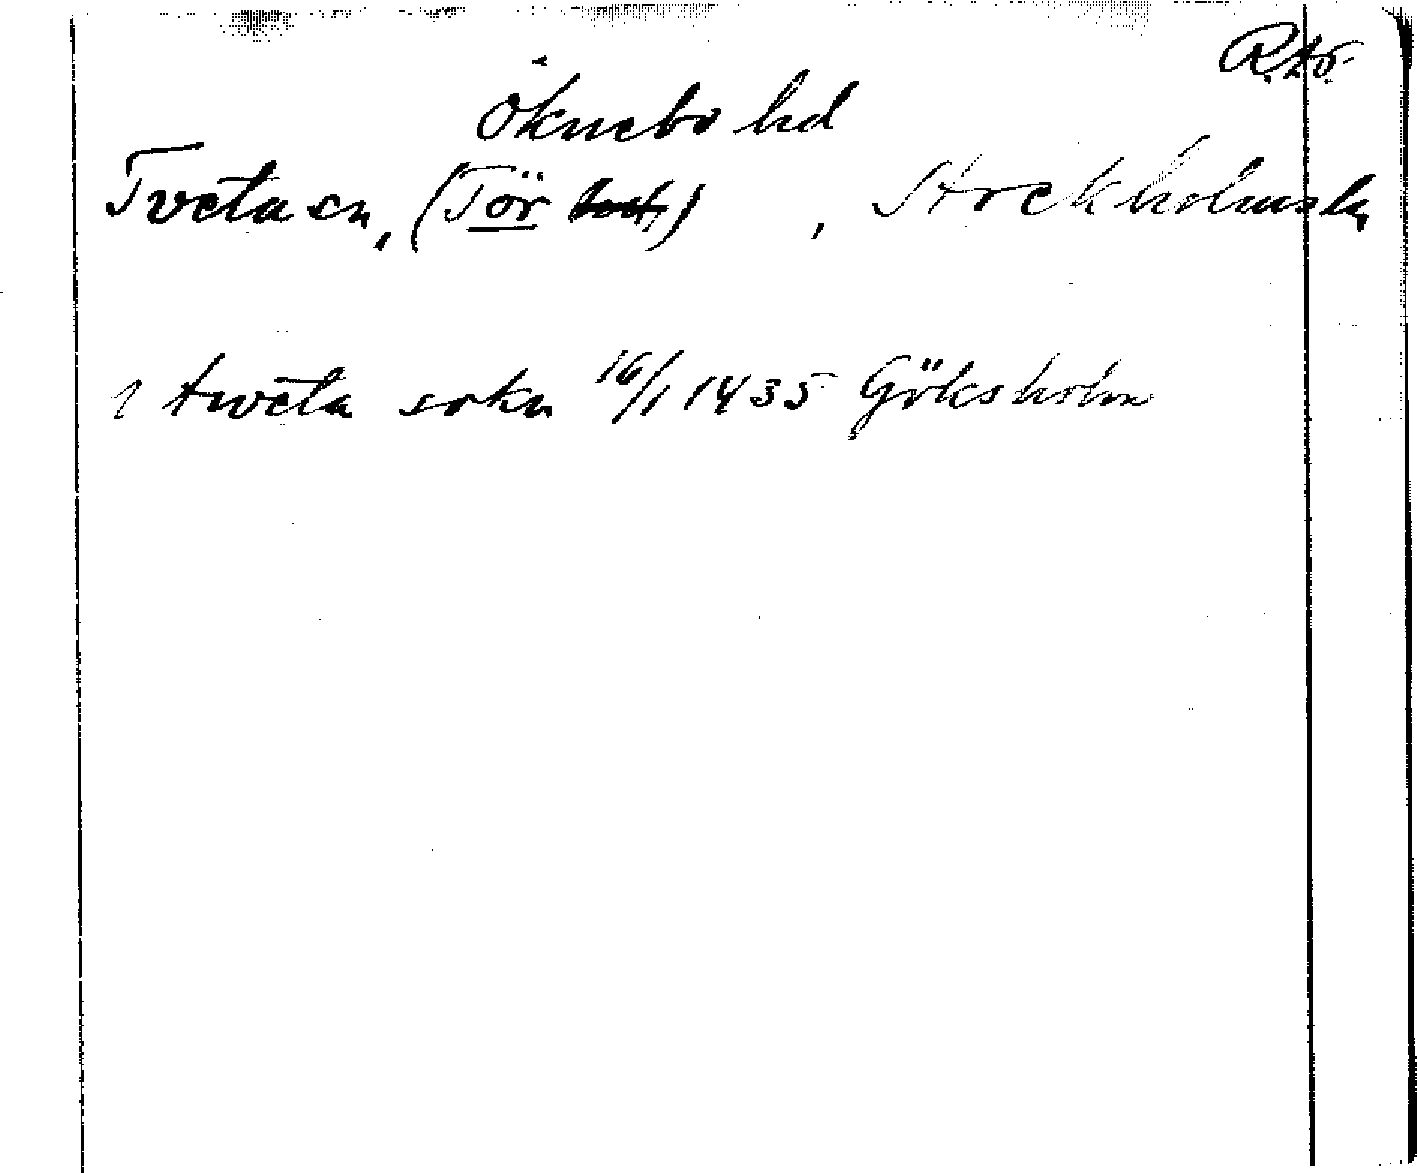 R.tö.
Öknebo hd
Tveta sn, (Tör), Stockholms ln
i tweta sokn 16/1 1435 Göksholm